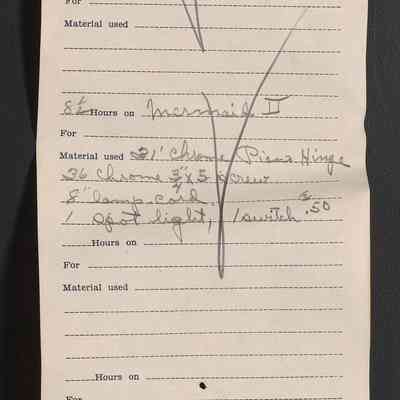 For
Material used
8½ Hours on Mermaid II
For
Material used 21' Chrome Piano Hinge
36 Chrome 3/4" x 5 screw
8" lamp cord.
1 spot light, 1 switch .50
Hours on
For
Material used
Hours on
For